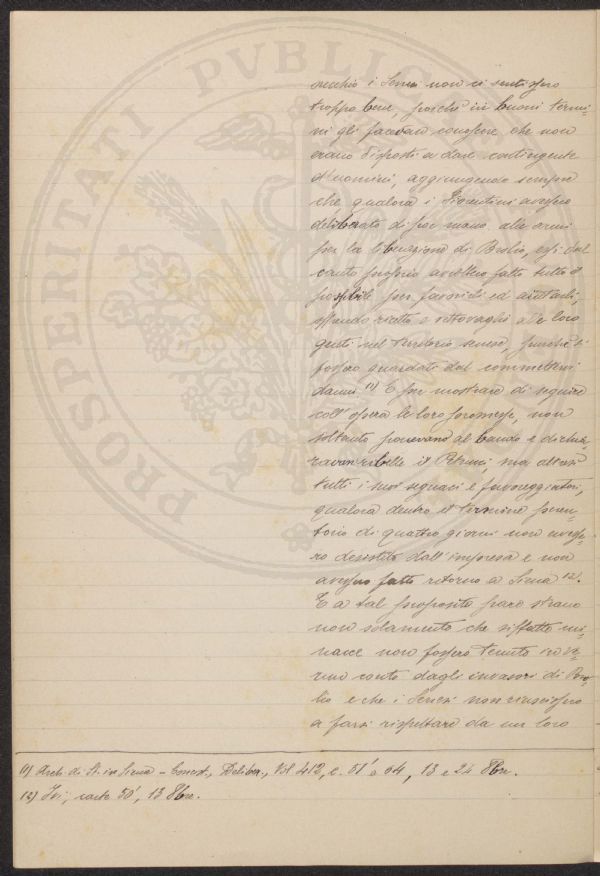 PROSPERITATI PVBLIC
recchio i Senesi non ci sentissero
troppo bene, poichè in buoni termi-
ni gli facevan conoscere che non
erano disposti a dare contingente
d'uomini, aggiungendo sempre
che qualora i Fiorentini avessero
deliberato di por mano alle armi
per la liberazione di Brolio, essi dal
canto proprio avrebbero fatto tutto il
possibile per favorirli ed aiutarli,
offrendo ricetto e vettovaglie alle loro
genti nel territorio senese, purchè si
fossero guardati dal commettervi
danni. 11) E per mostrare di seguire
coll'opera le loro promesse, non
soltanto ponevano al bando e dichia-
ravan ribelle il Petrucci, ma altresì
tutti i suoi seguaci e favoreggiatori,
qualora dentro il termine peren-
torio di quattro giorni non avesse-
ro desistito dall'impresa e non
avessero fatto ritorno a Siena 12).
E a tal proposito pare strano
non solamente che siffatte mi-
nacce non fossero tenute in ve-
run conto dagli invasori di Bro-
lio e che i Senesi non riuscissero
a farsi rispettare da un loro
11) Arch. di St. in Siena - Concist., Deliber., Vol 412, c. 51' a 64, 13 e 24 8bre.
12) Ivi, carte 50', 13 8bre.